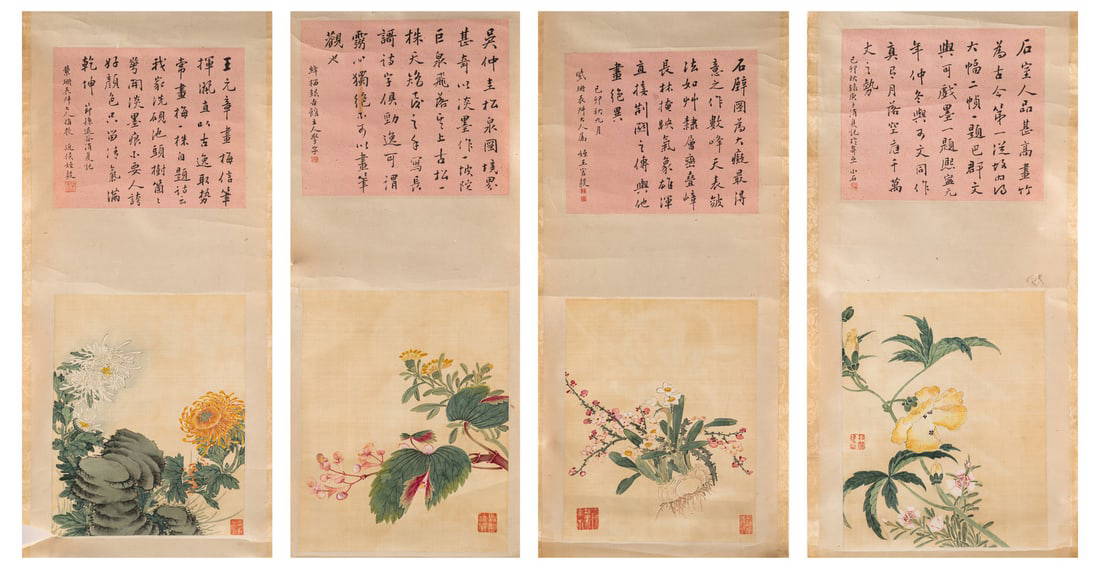 王元章畫梅信筆
揮灑直以古逸取勢
常畫梅一株自題詩云
我家洗硯池頭樹箇箇
花開淡墨痕不要人誇
好顏色只留清氣滿
乾坤 節孫退谷消夏記
吳仲圭松泉圖境界
甚奇以淡墨作一坡陀
巨泉飛落泉上古松一
株天矯成之字寫其
調詩字俱勁逸可謂
靈心獨絕不可以畫筆
觀也
石壁圖為大癡最得
意之作數峰天表皴
法如艸隸層巒疊嶂
長林掩映氣象雄渾
直接荆關之傳與他
畫絕異
己卯秋九月
石室人品甚高畫竹
為古今第一從坡內得
大幅二幀一題巴郡文
與可戲墨一題熙寧元
年仲冬與可文同作
真有月落空庭千萬
大之勢
己卯秋錄庚子消夏記 小石